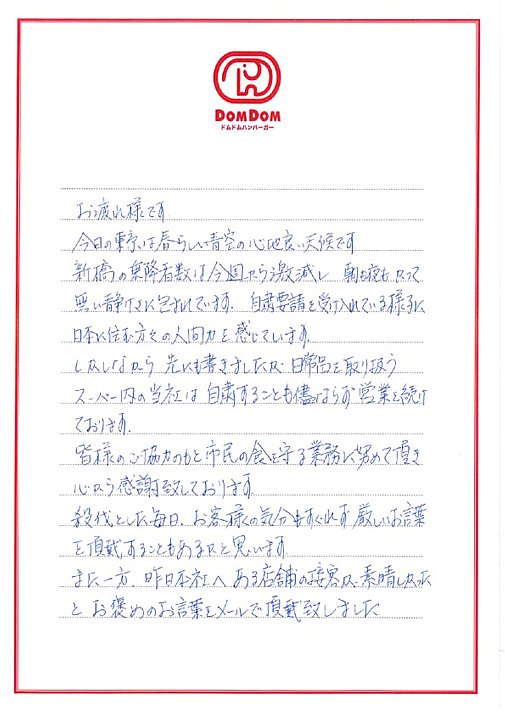 DOMDOM
ドムドムハンバーガー
お疲れ様です
今日の東京は春らしい青空の心地良い天候です
新橋の乗降者数は今週から激減し 朝も夜もかつて
無い静けさに包まれています. 自粛要請を受け入れている様子に
日本に住む方々の人間力を感じています.
しかしながら 先にも書きましたが 日常品を取り扱う
スーパー内の当社は自粛することも儘ならず営業を続け
ております.
皆様のご協力のもと市民の食を守る業務に努めて頂き
心から感謝致しております
殺伐とした毎日、お客様の気分もすぐれず 厳しいお言葉
を頂戴することもあるかと思います
また一方、昨日本社へ ある店舗の接客が素晴しかった
と お褒めのお言葉をメールで頂戴致しました